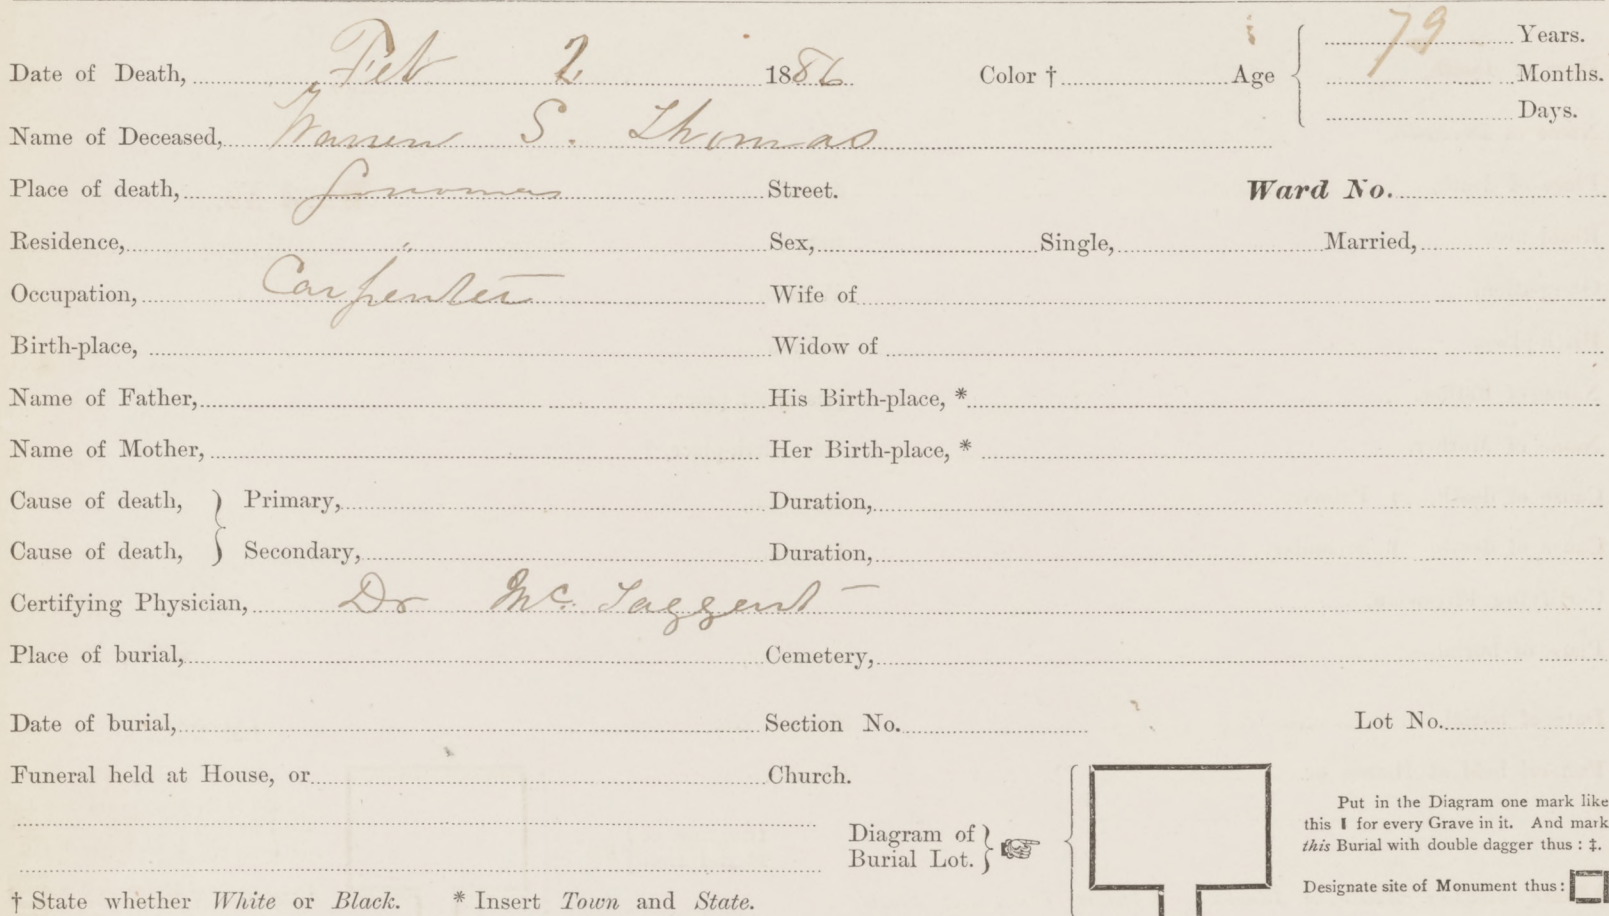 Date of Death, Feb 2 1886 Color † Age 79 Years.
Months.
Days.
Name of Deceased, Warren S. Thomas
Place of death, Sonoma Street. Ward No.
Residence, " Sex, Single, Married,
Occupation, Carpenter Wife of
Birth-place, Widow of
Name of Father, His Birth-place, *
Name of Mother, Her Birth-place, *
Cause of death, } Primary, Duration,
Cause of death, } Secondary, Duration,
Certifying Physician, Dr Mc. Taggent
Place of burial, Cemetery,
Date of burial, Section No. Lot No.
Funeral held at House, or Church.
Diagram of
Burial Lot.
Put in the Diagram one mark like
this ▮ for every Grave in it. And mark
this Burial with double dagger thus : ‡.
Designate site of Monument thus :
† State whether White or Black. * Insert Town and State.